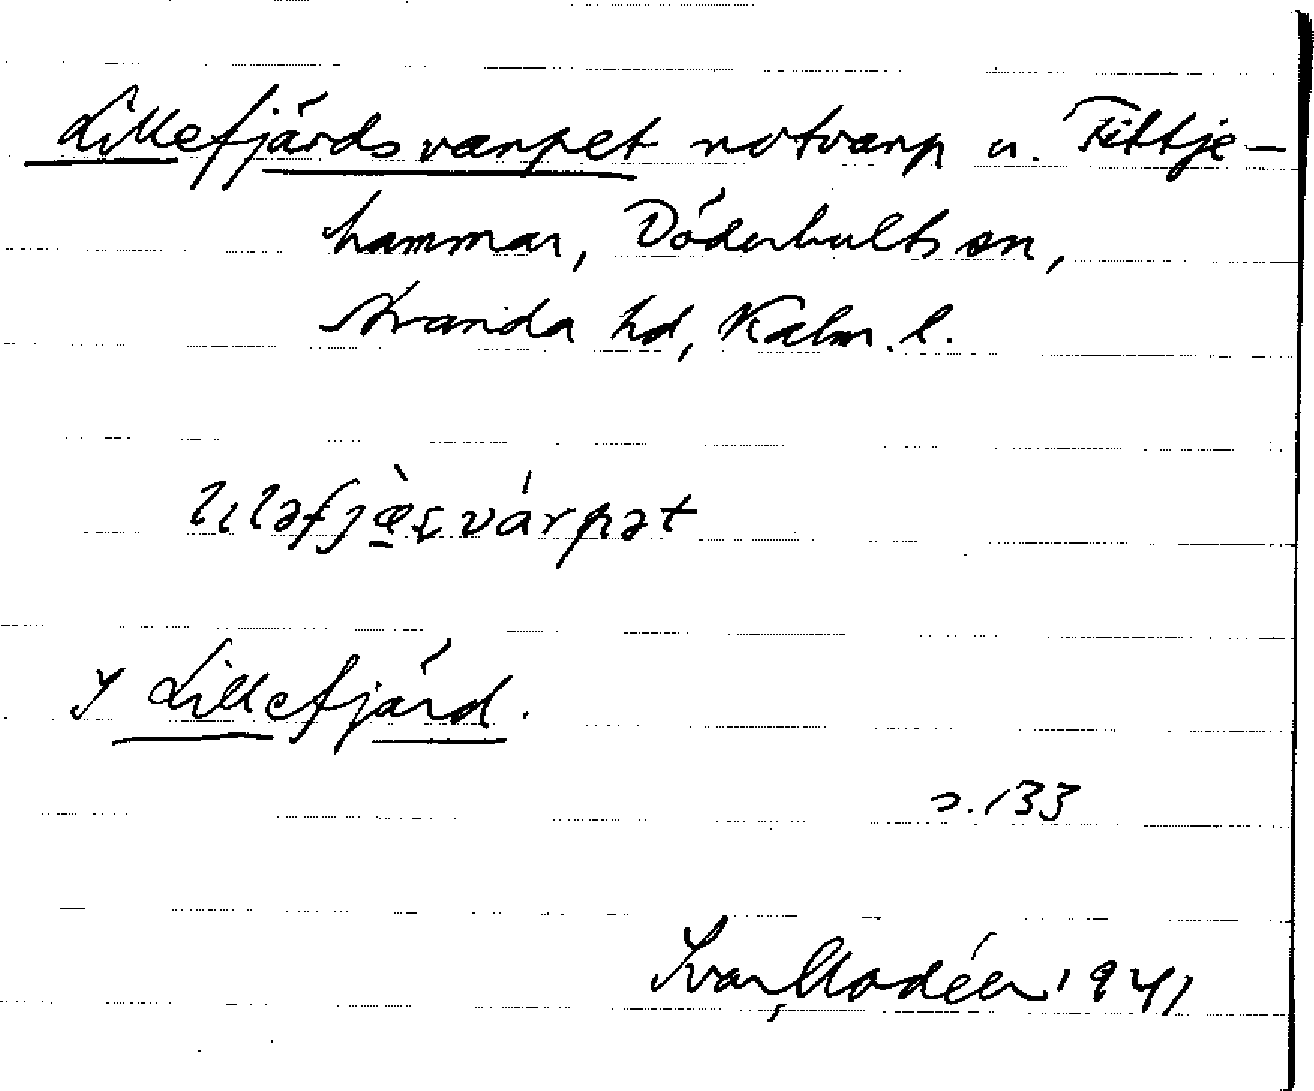 Lillefjärdsvarpet notvarp u. Fittje-
hammar, Döderhults sn,
Stranda hd, Kalm. l.
lıləfjæ̀ṣvárpət
I Lillefjärd.
s. 133
Ivar Modéer 1941